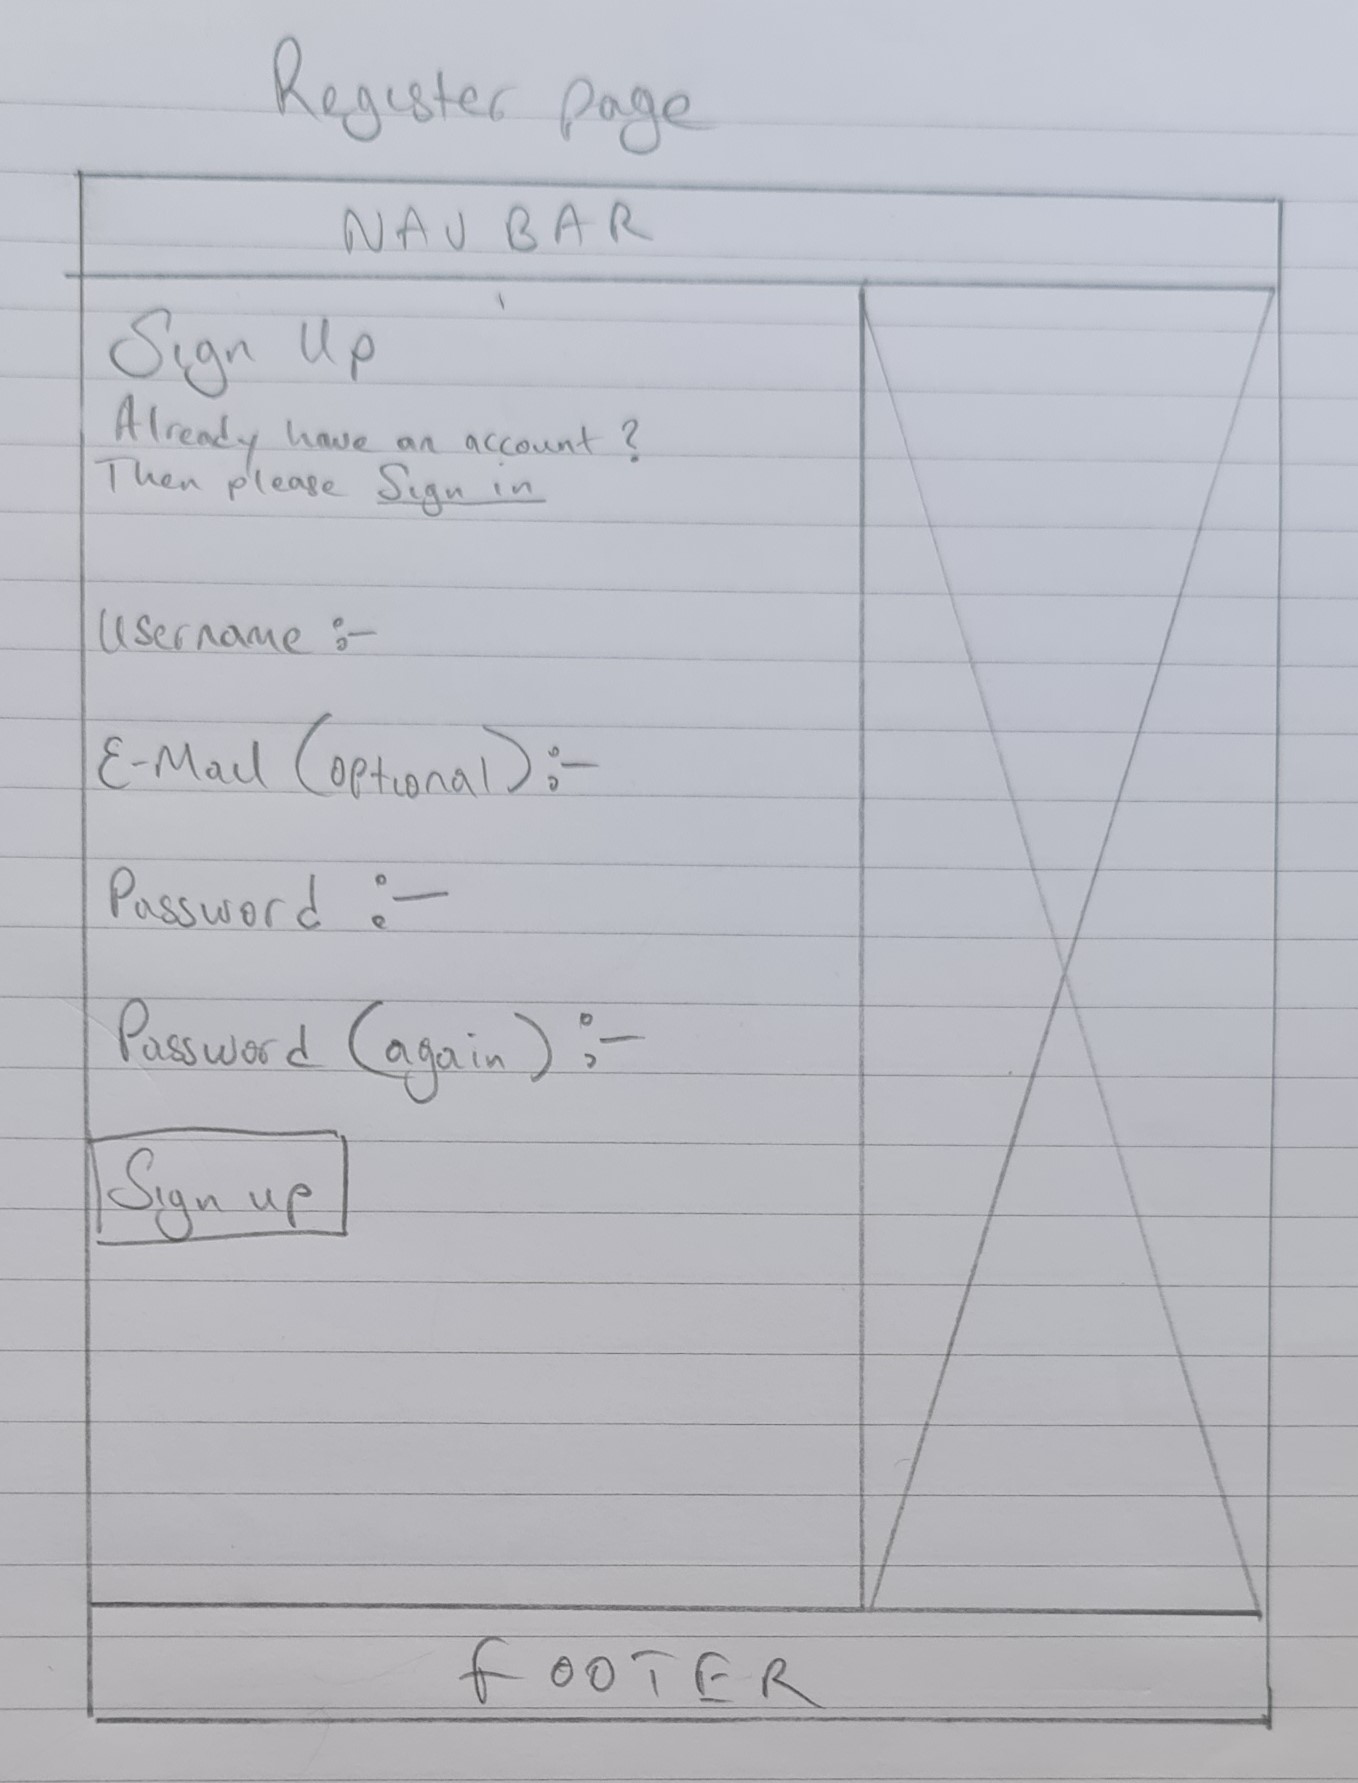 Register page
NAV BAR
Sign Up
Already have an account?
Then please Sign in
Username :-
E-Mail (optional) :-
Password :-
Password (again) :-
Sign up
FOOTER